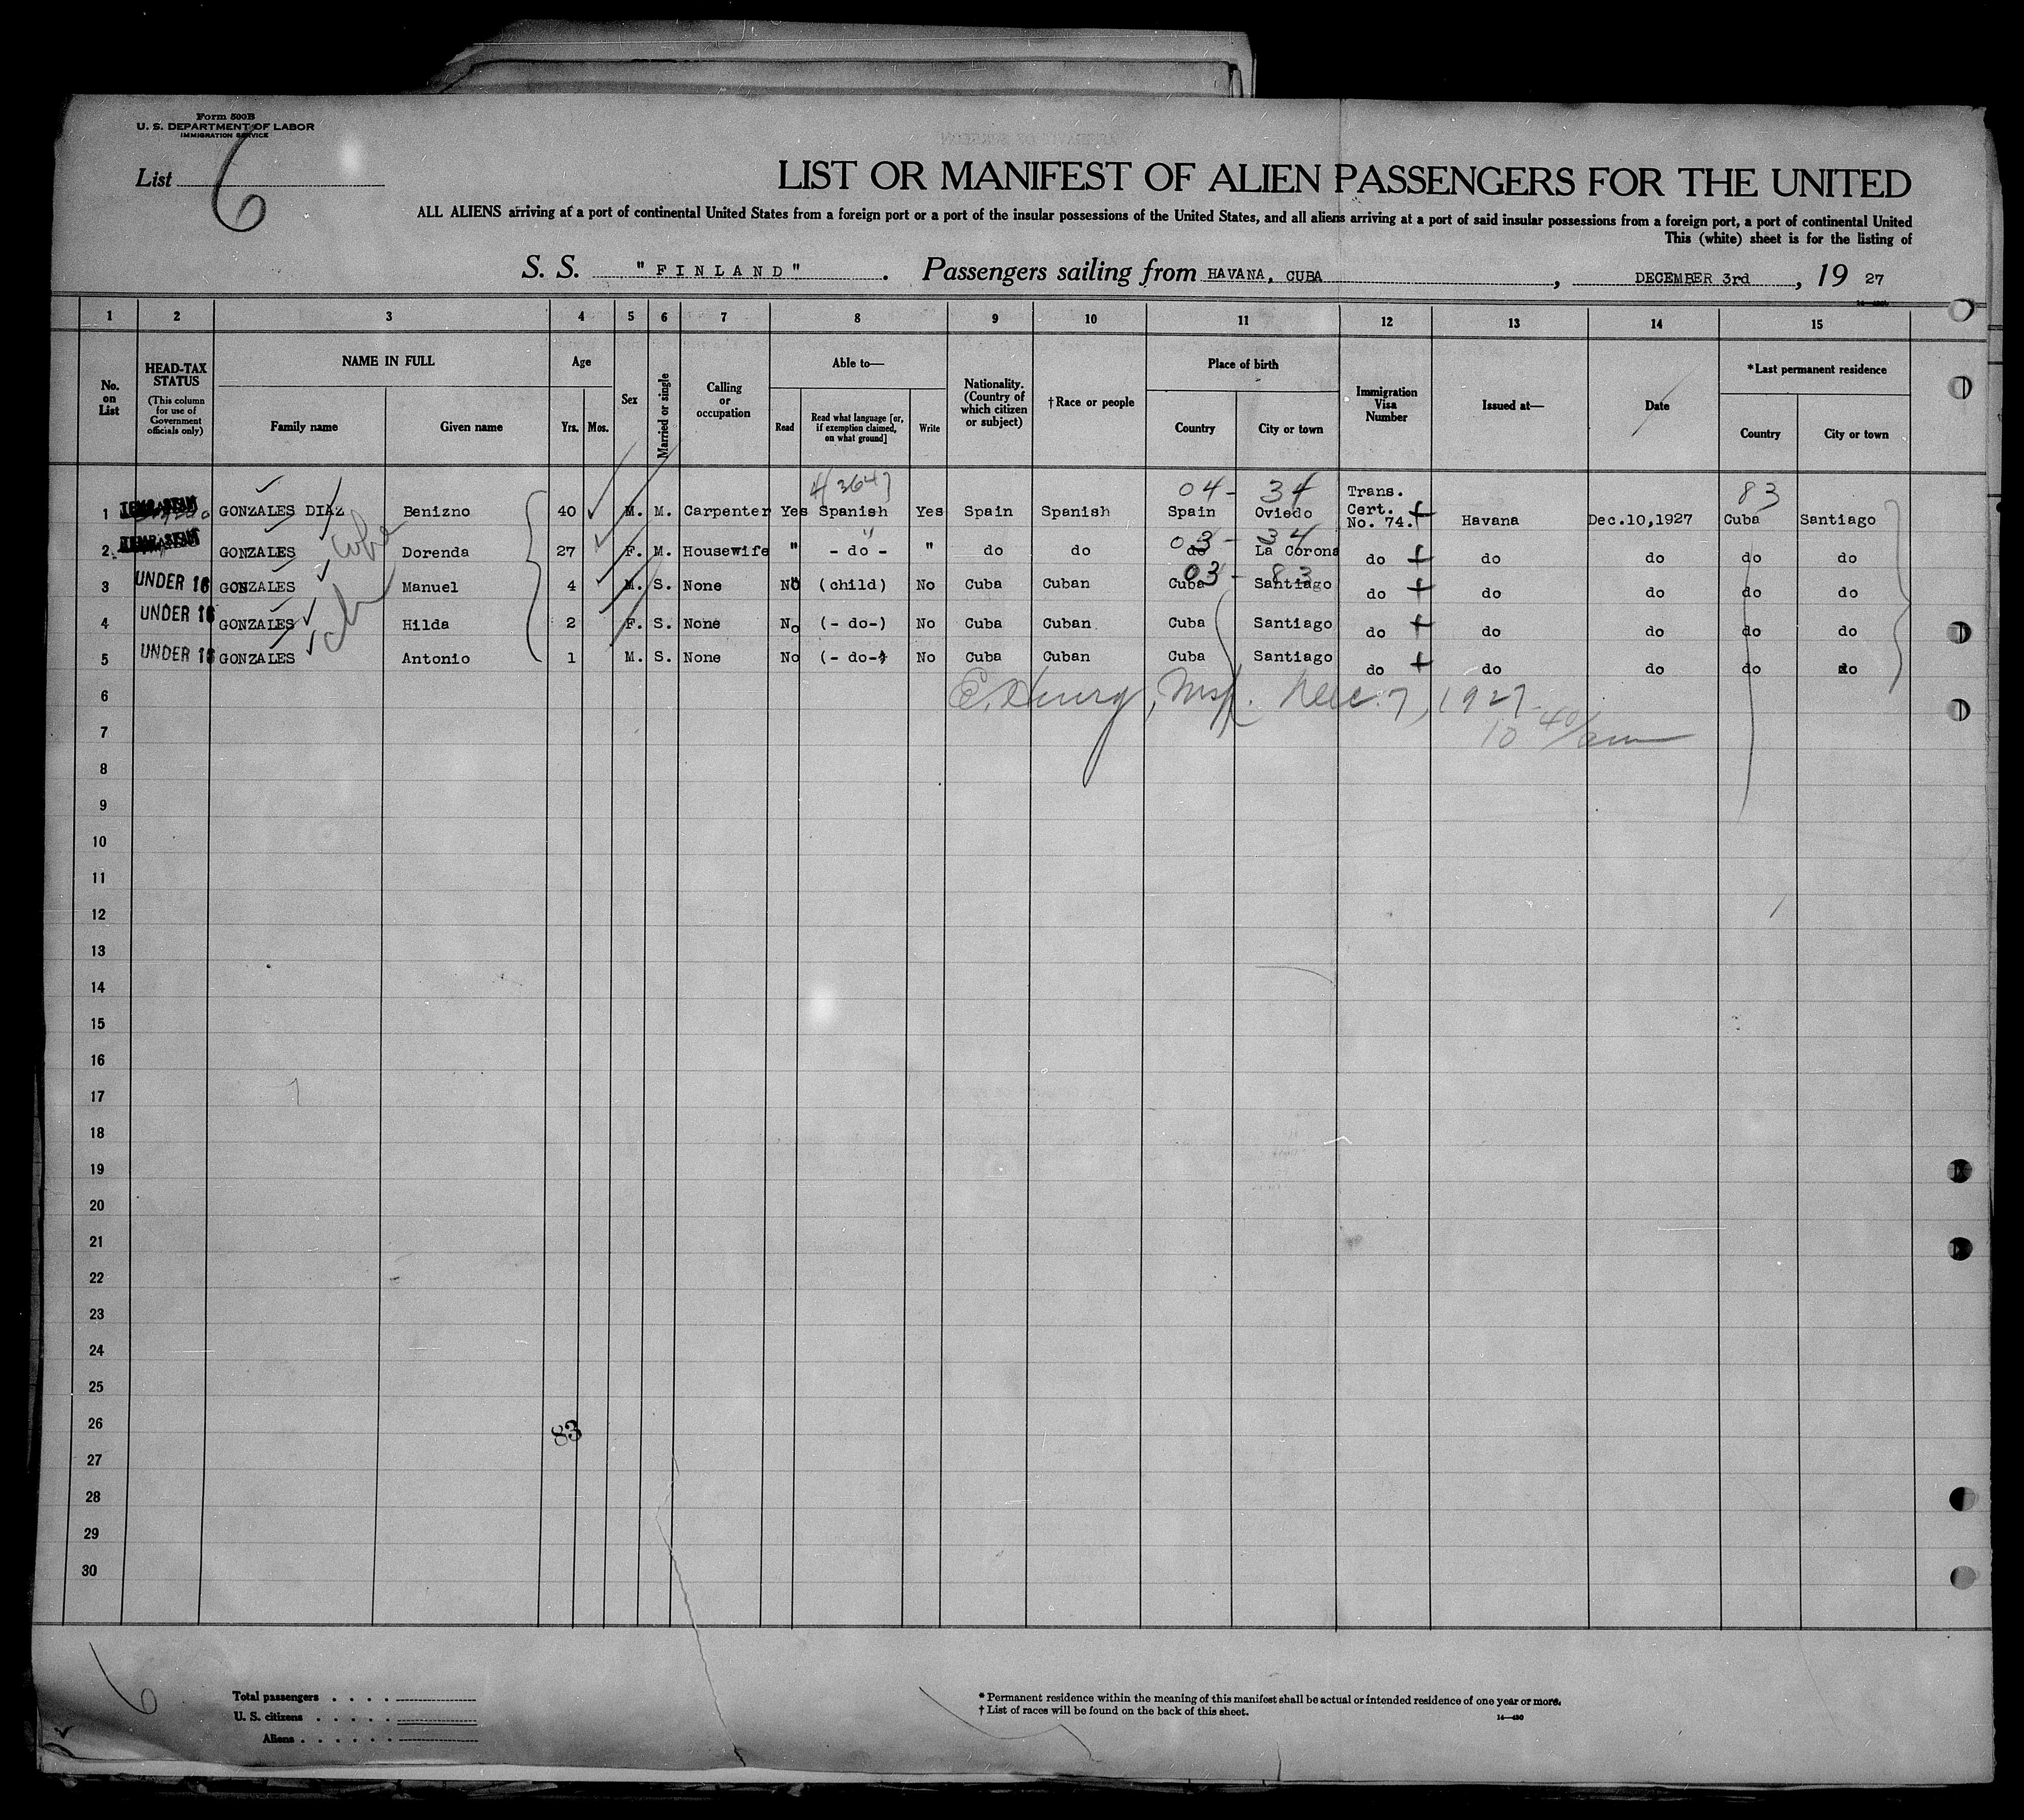 Form 500B
U. S. DEPARTMENT OF LABOR
IMMIGRATION SERVICE
List 6
LIST OR MANIFEST OF ALIEN PASSENGERS FOR THE UNITED
ALL ALIENS arriving at a port of continental United States from a foreign port or a port of the insular possessions of the United States, and all aliens arriving at a port of said insular possessions from a foreign port, a port of continental United
This (white) sheet is for the listing of
S. S. "FINLAND". Passengers sailing from HAVANA, CUBA, DECEMBER 3rd, 19 27
1 2 3 4 5 6 7 8 9 10 11 12 13 14 15
No. on List
HEAD-TAX STATUS (This column for use of Government officials only)
NAME IN FULL Family name Given name
Age Yrs. Mos.
Sex
Married or single
Calling or occupation
Able to— Read Read what language [or, if exemption claimed, on what ground] Write
Nationality. (Country of which citizen or subject)
†Race or people
Place of birth Country City or town
Immigration Visa Number
Issued at—
Date
*Last permanent residence Country City or town
04- 34 83
1 GONZALES DIAZ Benizno 40 M. M. Carpenter Yes Spanish Yes Spain Spanish Spain Oviedo Trans. Cert. No. 74. Havana Dec.10,1927 Cuba Santiago
Cuba 03- 34
2 GONZALES Dorenda 27 F. M. Housewife " - do - " do do do La Corona do do do do do
03- 83
3 UNDER 16 GONZALES Manuel 4 M. S. None No (child) No Cuba Cuban Cuba Santiago do do do do do
4 UNDER 16 GONZALES Hilda 2 F. S. None No (- do-) No Cuba Cuban Cuba Santiago do do do do do
5 UNDER 16 GONZALES Antonio 1 M. S. None No (- do-) No Cuba Cuban Cuba Santiago do do do do do
6 Insp. Dec. 7, 1927
7 10 40/am
8
9
10
11
12
13
14
15
16
17
18
19
20
21
22
23
24
25
26 83
27
28
29
30
6
Total passengers
U. S. citizens
Aliens
* Permanent residence within the meaning of this manifest shall be actual or intended residence of one year or more.
† List of races will be found on the back of this sheet.
14—430